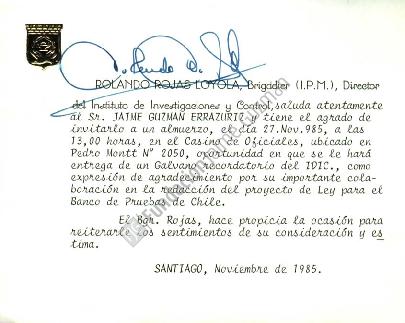 ROLANDO ROJAS LOYOLA, Brigadier (I.P.M.), Director
del Instituto de Investigaciones y Control, saluda atentamente
al Sr. JAIME GUZMAN ERRAZURIZ y tiene el agrado de
invitarlo a un almuerzo, el día 27.Nov.985, a las
13,00 horas, en el Casino de Oficiales, ubicado en
Pedro Montt N° 2050, oportunidad en que se le hará
entrega de un Galvano recordatorio del IDIC., como
expresión de agradecimiento por su importante cola-
boración en la redacción del proyecto de Ley para el
Banco de Pruebas de Chile.
El Bgr. Rojas, hace propicia la ocasión para
reiterarle los sentimientos de su consideración y es
tima.
SANTIAGO, Noviembre de 1985.